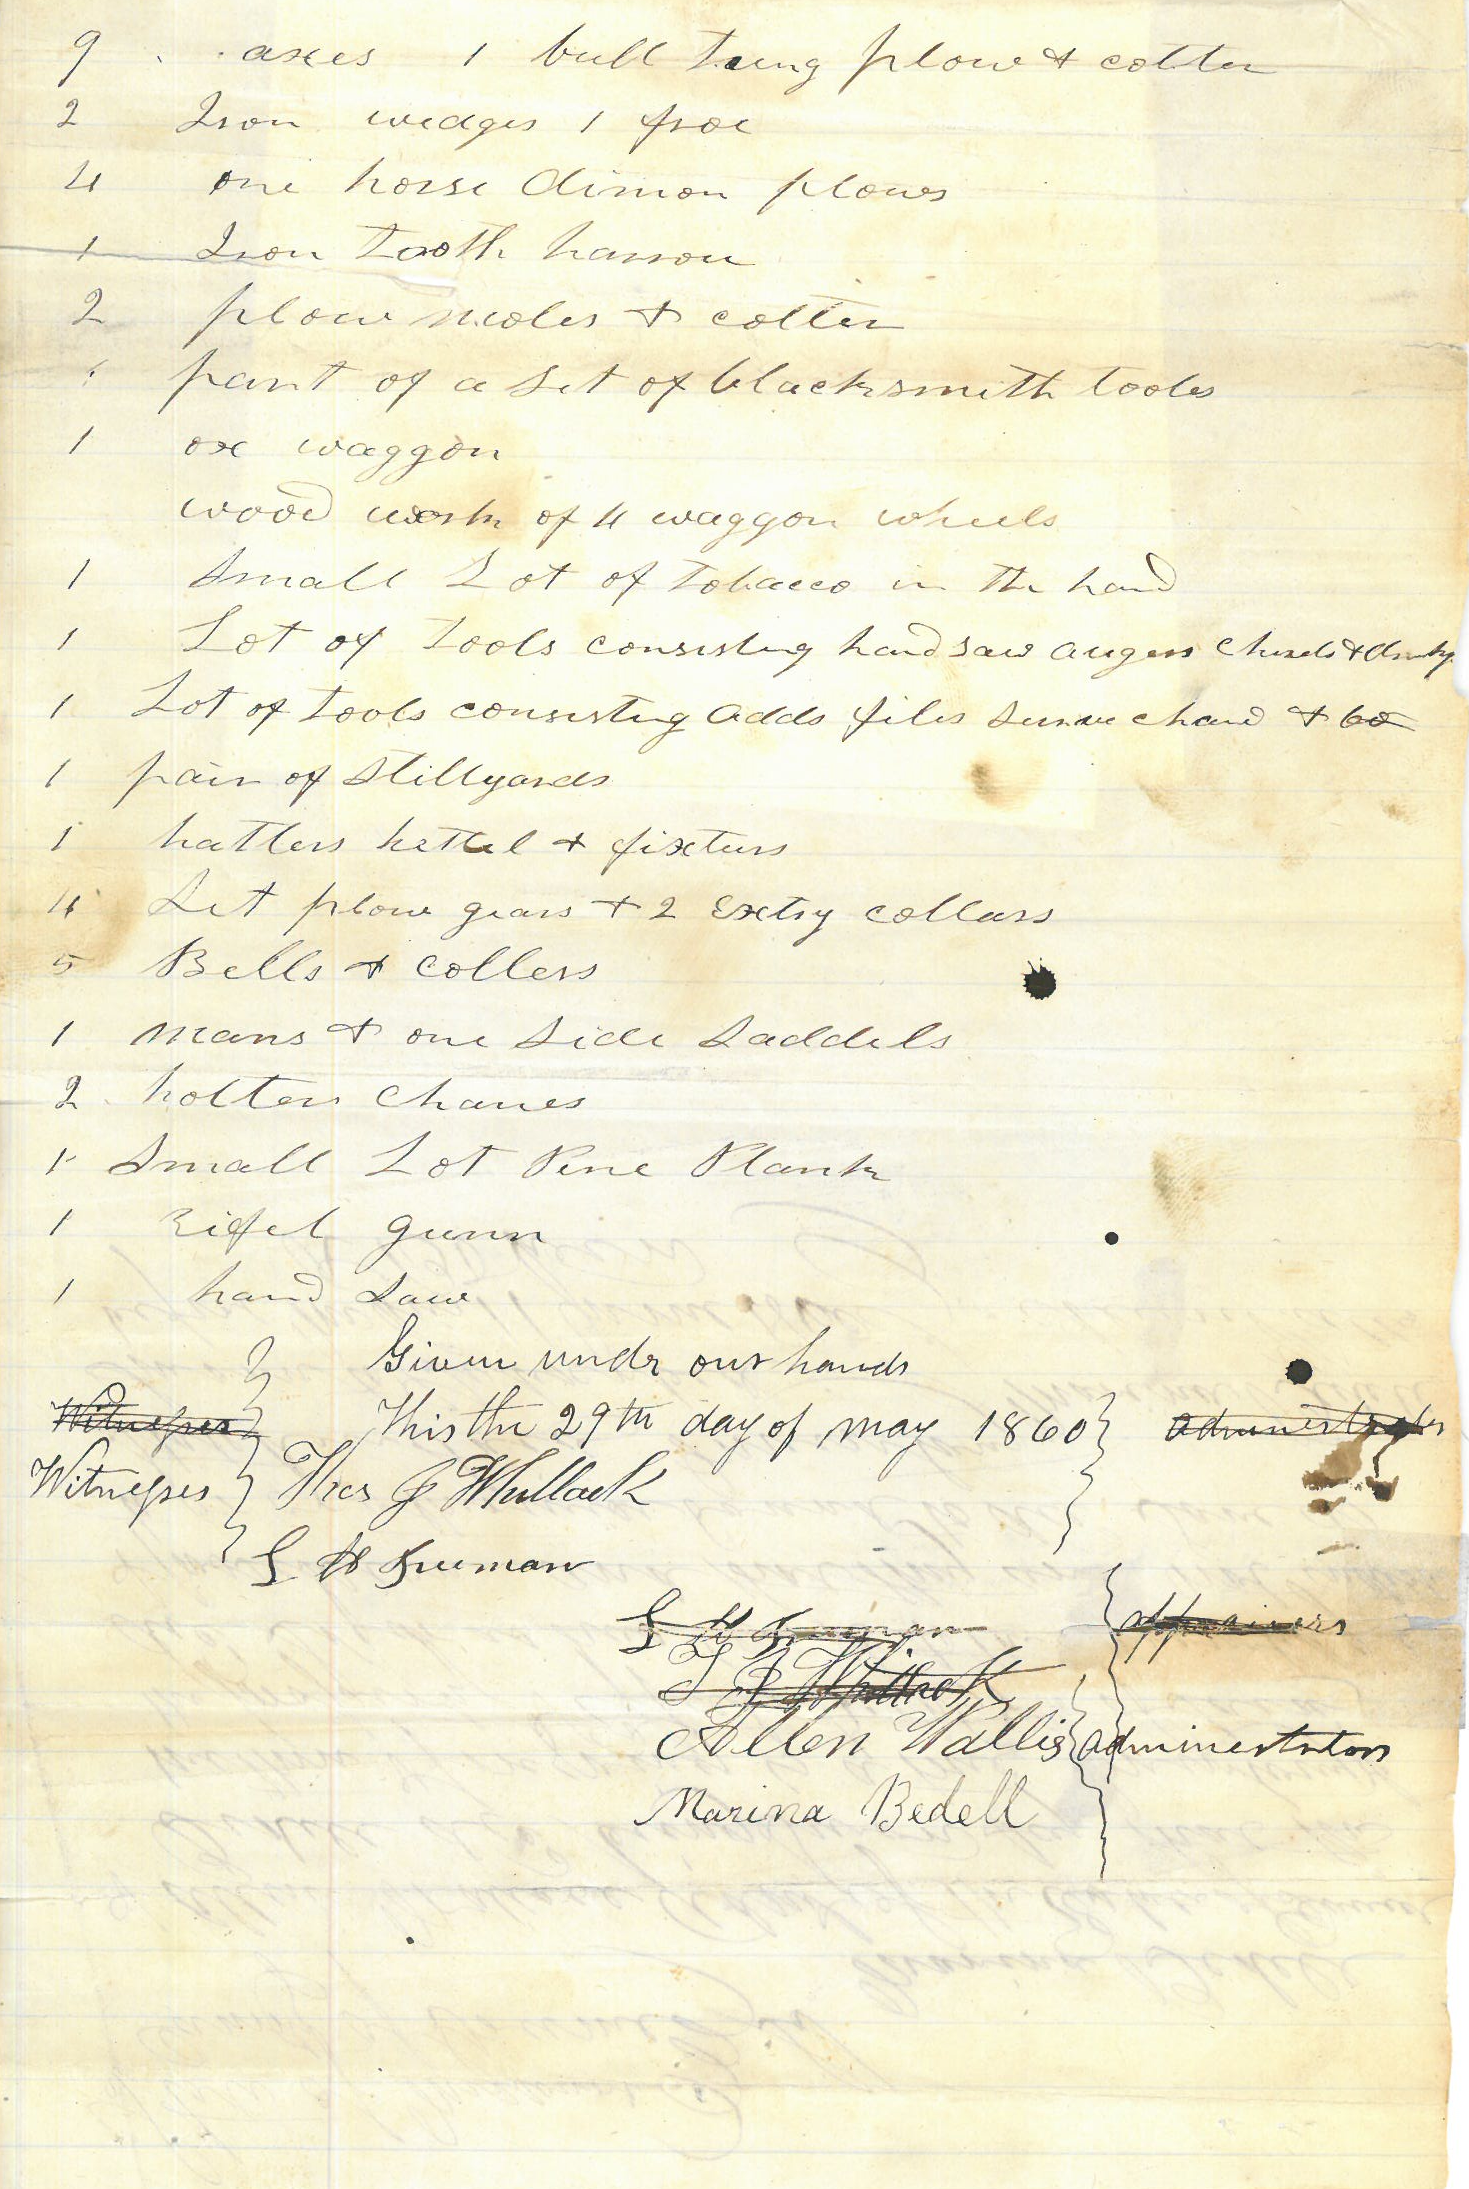 9 axes 1 bull tung plow & colter
2 Iron wedges 1 froe
4 one horse dimon plows
1 Iron tooth harrow
2 plow moles & colter
1 part of a set of blacksmith tools
1 ox waggon
wood work of 4 waggon wheels
1 Small Lot of tobacco in the hand
1 Lot of tools consisting hand saw augers chisels &
1 Lot of tools consisting adds files &
1 pair of Stillyards
1 hatters kettel & fixturs
4 Set plow gears & 2 Extry collars
5 Bells & Collers
1 mans & one Side Saddels
2 holter Chanes
1 Small Lot Pine Plank
1 Rifel gunn
1 hand saw
Given undr our hands
Witnesses This the 29th day of may 1860 administrators
Witnesses Thos J Whitlock
G H Freeman
G H Freeman appraisers
T J Whitlock
Allen Wallis administrators
Marina Bedell